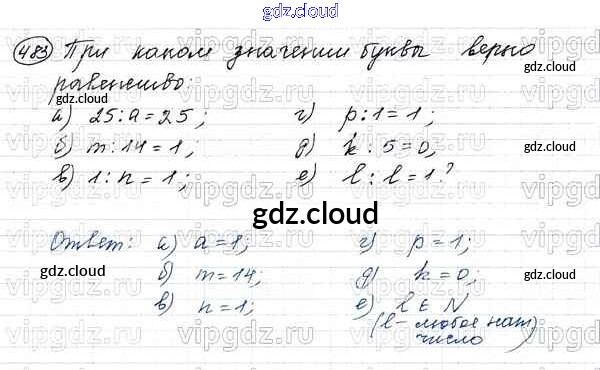 gdz.cloud
483 При каком значении буквы верно
равенство:
gdz.cloud
а) 25 : a = 25; г) p : 1 = 1;
б) m : 14 = 1; д) k : 5 = 0,
gdz.cloud
в) 1 : n = 1; е) l : l = 1?
gdz.cloud
Ответ: а) a = 1; г) p = 1;
gdz.cloud
б) m = 14; д) k = 0;
gdz.cloud
в) n = 1; е) l ∈ N
(l - любое нат
число)
gdz.cloud
vipgdz.ru